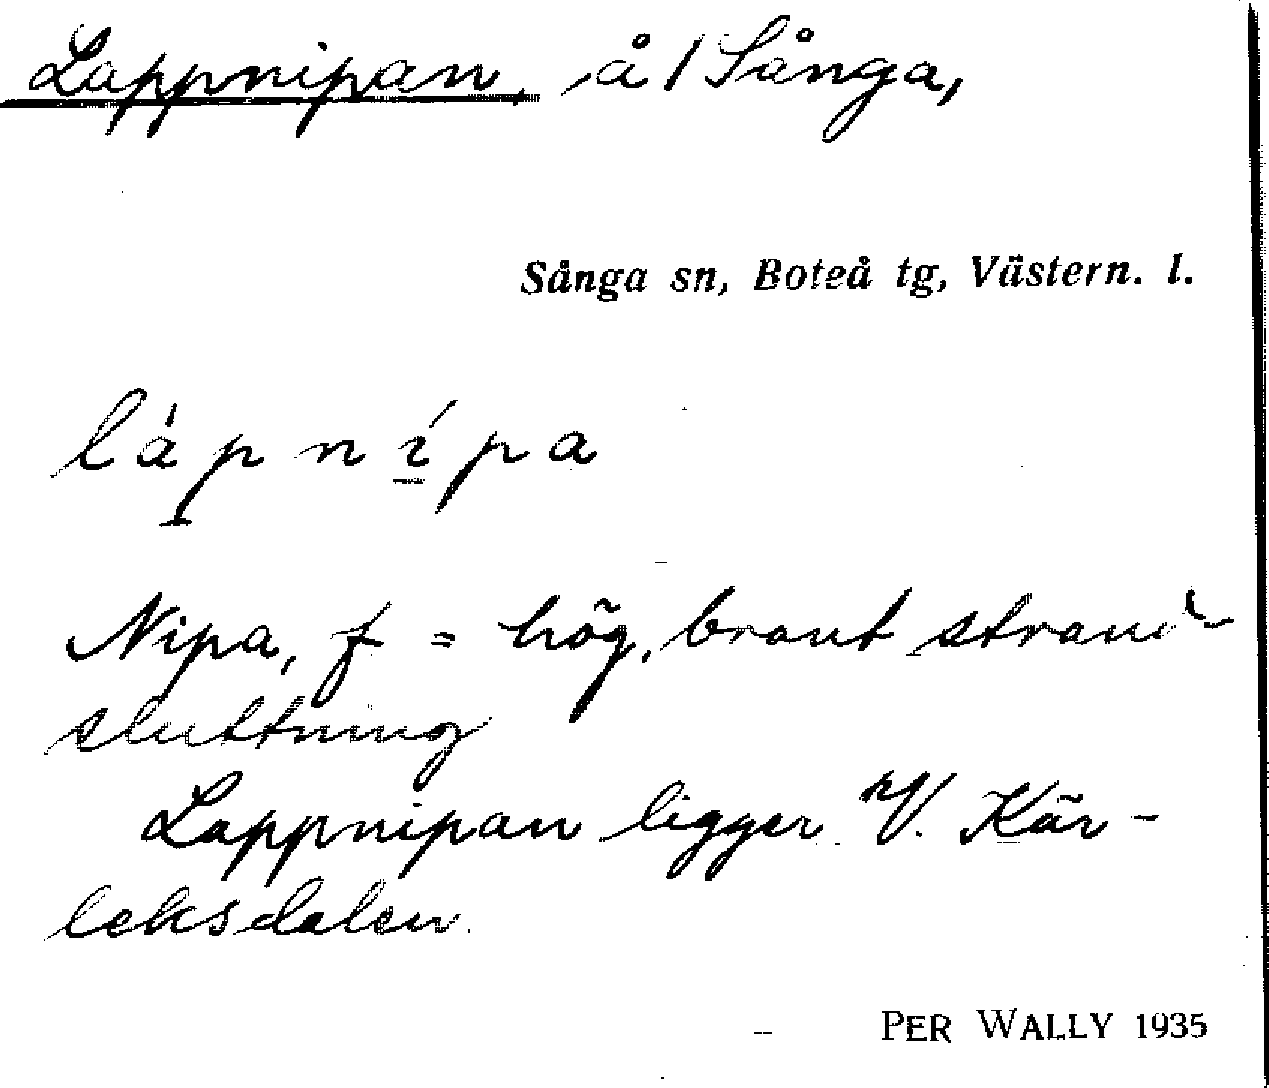 Lappnipan, å/Sånga,
Sånga sn, Boteå tg, Västern. l.
lápnípa
Nipa, f = hög, brant strand-
sluttning
Lappnipan ligger V. Kär-
leksdalen.
PER WALLY 1935